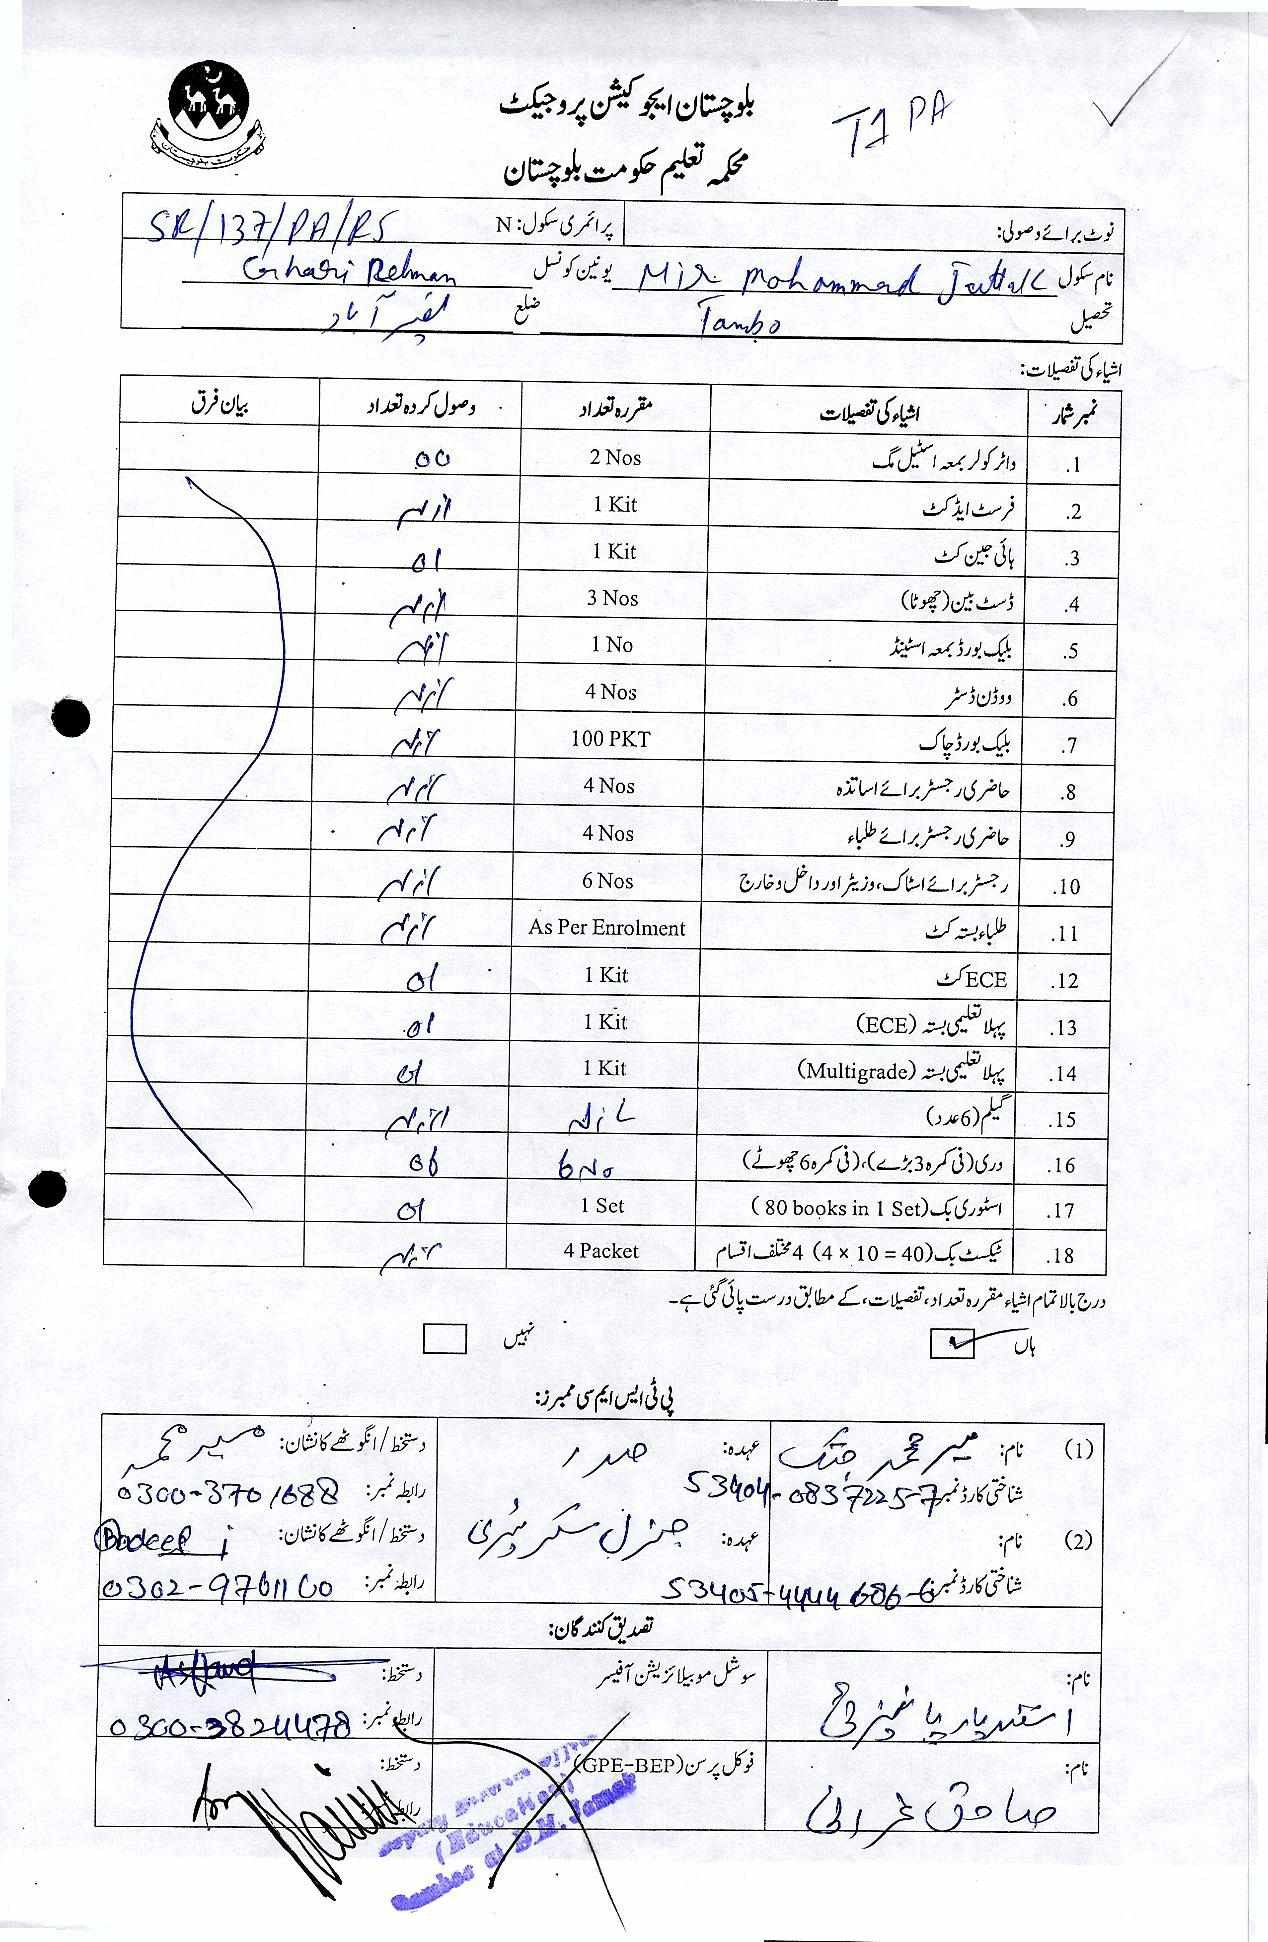 بلوچستان ایجوکیشن پروجیکٹ
T1 PA
محکمہ تعلیم حکومت بلوچستان
نوٹ برائے وصولی: پرائمری سکول: N SR/137/PA/RS
نام سکول Mir Mohammad Jattak یونین کونسل Ghari Rehman
تحصیل Tambo ضلع نصیر آباد
اشیاء کی تفصیلات:
نمبر شمار اشیاء کی تفصیلات مقررہ تعداد وصول کردہ تعداد بیان فرق
1. واٹر کولر بمعہ اسٹیل مگ 2 Nos 00
2. فرسٹ ایڈ کٹ 1 Kit Nil
3. ہائی جین کٹ 1 Kit 01
4. ڈسٹ بین (چھوٹا) 3 Nos Nil
5. بلیک بورڈ بمعہ اسٹینڈ 1 No Nil
6. ووڈن ڈسٹر 4 Nos Nil
7. بلیک بورڈ چاک 100 PKT Nil
8. حاضری رجسٹر برائے اساتذہ 4 Nos Nil
9. حاضری رجسٹر برائے طلباء 4 Nos Nil
10. رجسٹر برائے اسٹاک، وزیٹر اور داخل و خارج 6 Nos Nil
11. طلباء بستہ کٹ As Per Enrolment Nil
12. ECE کٹ 1 Kit 01
13. پہلا تعلیمی بستہ (ECE) 1 Kit 01
14. پہلا تعلیمی بستہ (Multigrade) 1 Kit 01
15. گیلم (6 عدد) Nil Nil
16. دری (فی کمرہ 3 بڑے)، (فی کمرہ 6 چھوٹے) 6 No 06
17. اسٹوری بک (80 books in 1 Set) 1 Set 01
18. ٹیکسٹ بک (4 × 10 = 40) 4 مختلف اقسام 4 Packet Nil
درج بالا تمام اشیاء مقررہ تعداد، تفصیلات، کے مطابق درست پائی گئی ہے۔
ہاں نہیں
پی ٹی ایس ایم سی ممبرز:
(1) نام: میر محمد جتک عہدہ: صدر دستخط/انگوٹھے کا نشان: میر محمد
شناختی کارڈ نمبر 53404-0837225-7 رابطہ نمبر: 0300-3701688
(2) نام: عہدہ: جنرل سکریٹری دستخط/انگوٹھے کا نشان:
شناختی کارڈ نمبر 53405-4444686-6 رابطہ نمبر: 0302-9761100
تصدیق کنندگان:
نام: سوشل موبیلائزیشن آفیسر دستخط:
رابطہ نمبر: 0300-3824478
نام: صادق عمرانی فوکل پرسن (GPE-BEP) دستخط:
(Education)